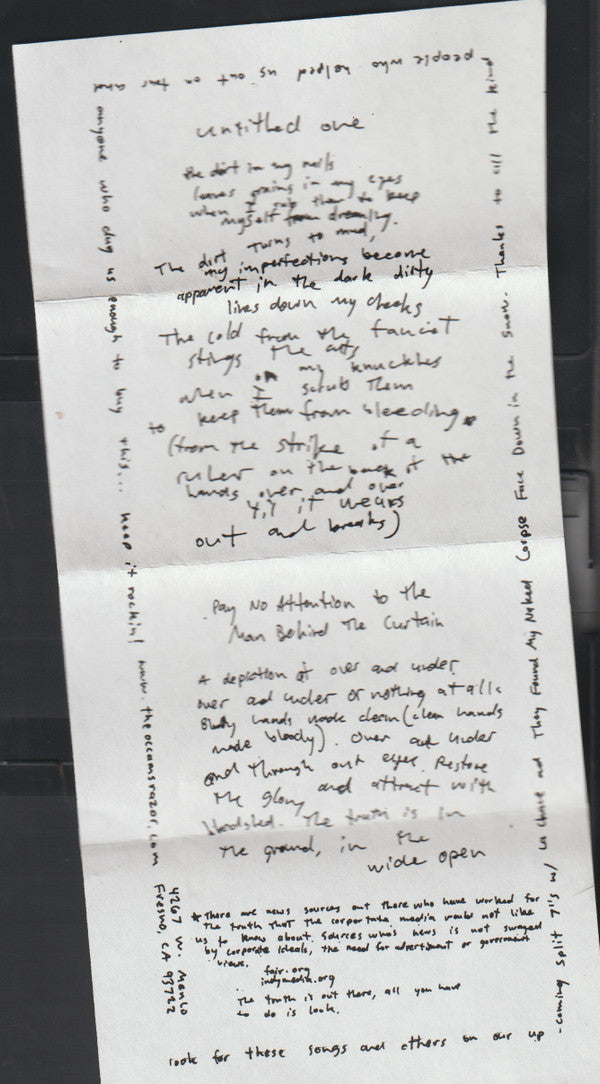 untitled one
the dirt in my nails
leaves grains in my eyes
when I rub them to keep
myself from dreaming.
The dirt turns to mud,
my imperfections become
apparent in the dark dirty
lines down my cheeks
The cold from the fauciet
stings the cuts
on my knuckles
when I scrub them
to keep them from bleeding
(from the strike of a
ruler on the back of the
hands over and over
'till it wears
out and breaks)
Pay No Attention to The
Man Behind The Curtain
A depiction of over and under
over and under or nothing at all.
Bloody hands made clean (clean hands
made bloody). Over and under
and through out eyes. Restore
the glory and attract with
bloodshed. The truth is in
the ground, in the
wide open
* There are news sources out there who have worked for
the truth THAT the corportate media would not like
us to know about. Sources who's news is not swayed
by corporate ideals, the need for advertisment or government
views.
fair.org
indymedia.org
The truth is out there, all you have
to do is look.
look for these songs and others on our up
-coming split 7"s w/ and They Found My Naked Corpse Face Down in the Snow. Thanks to all the kind
people who helped us out on tour and
anyone who dug us enough to buy this... keep it rockin! www.theoccamsrazor.com
4267 W. Menlo
Fresno, CA 93722